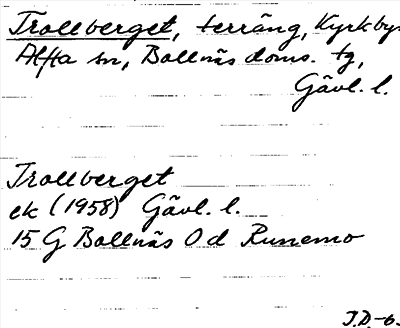 Trollberget, terräng, Kyrkby
Alfta sn, Bollnäs doms. tg,
Gävl. l.
Trollberget
ek (1958) Gävl. l.
15 G Bollnäs 0d Runemo
J.D-6.